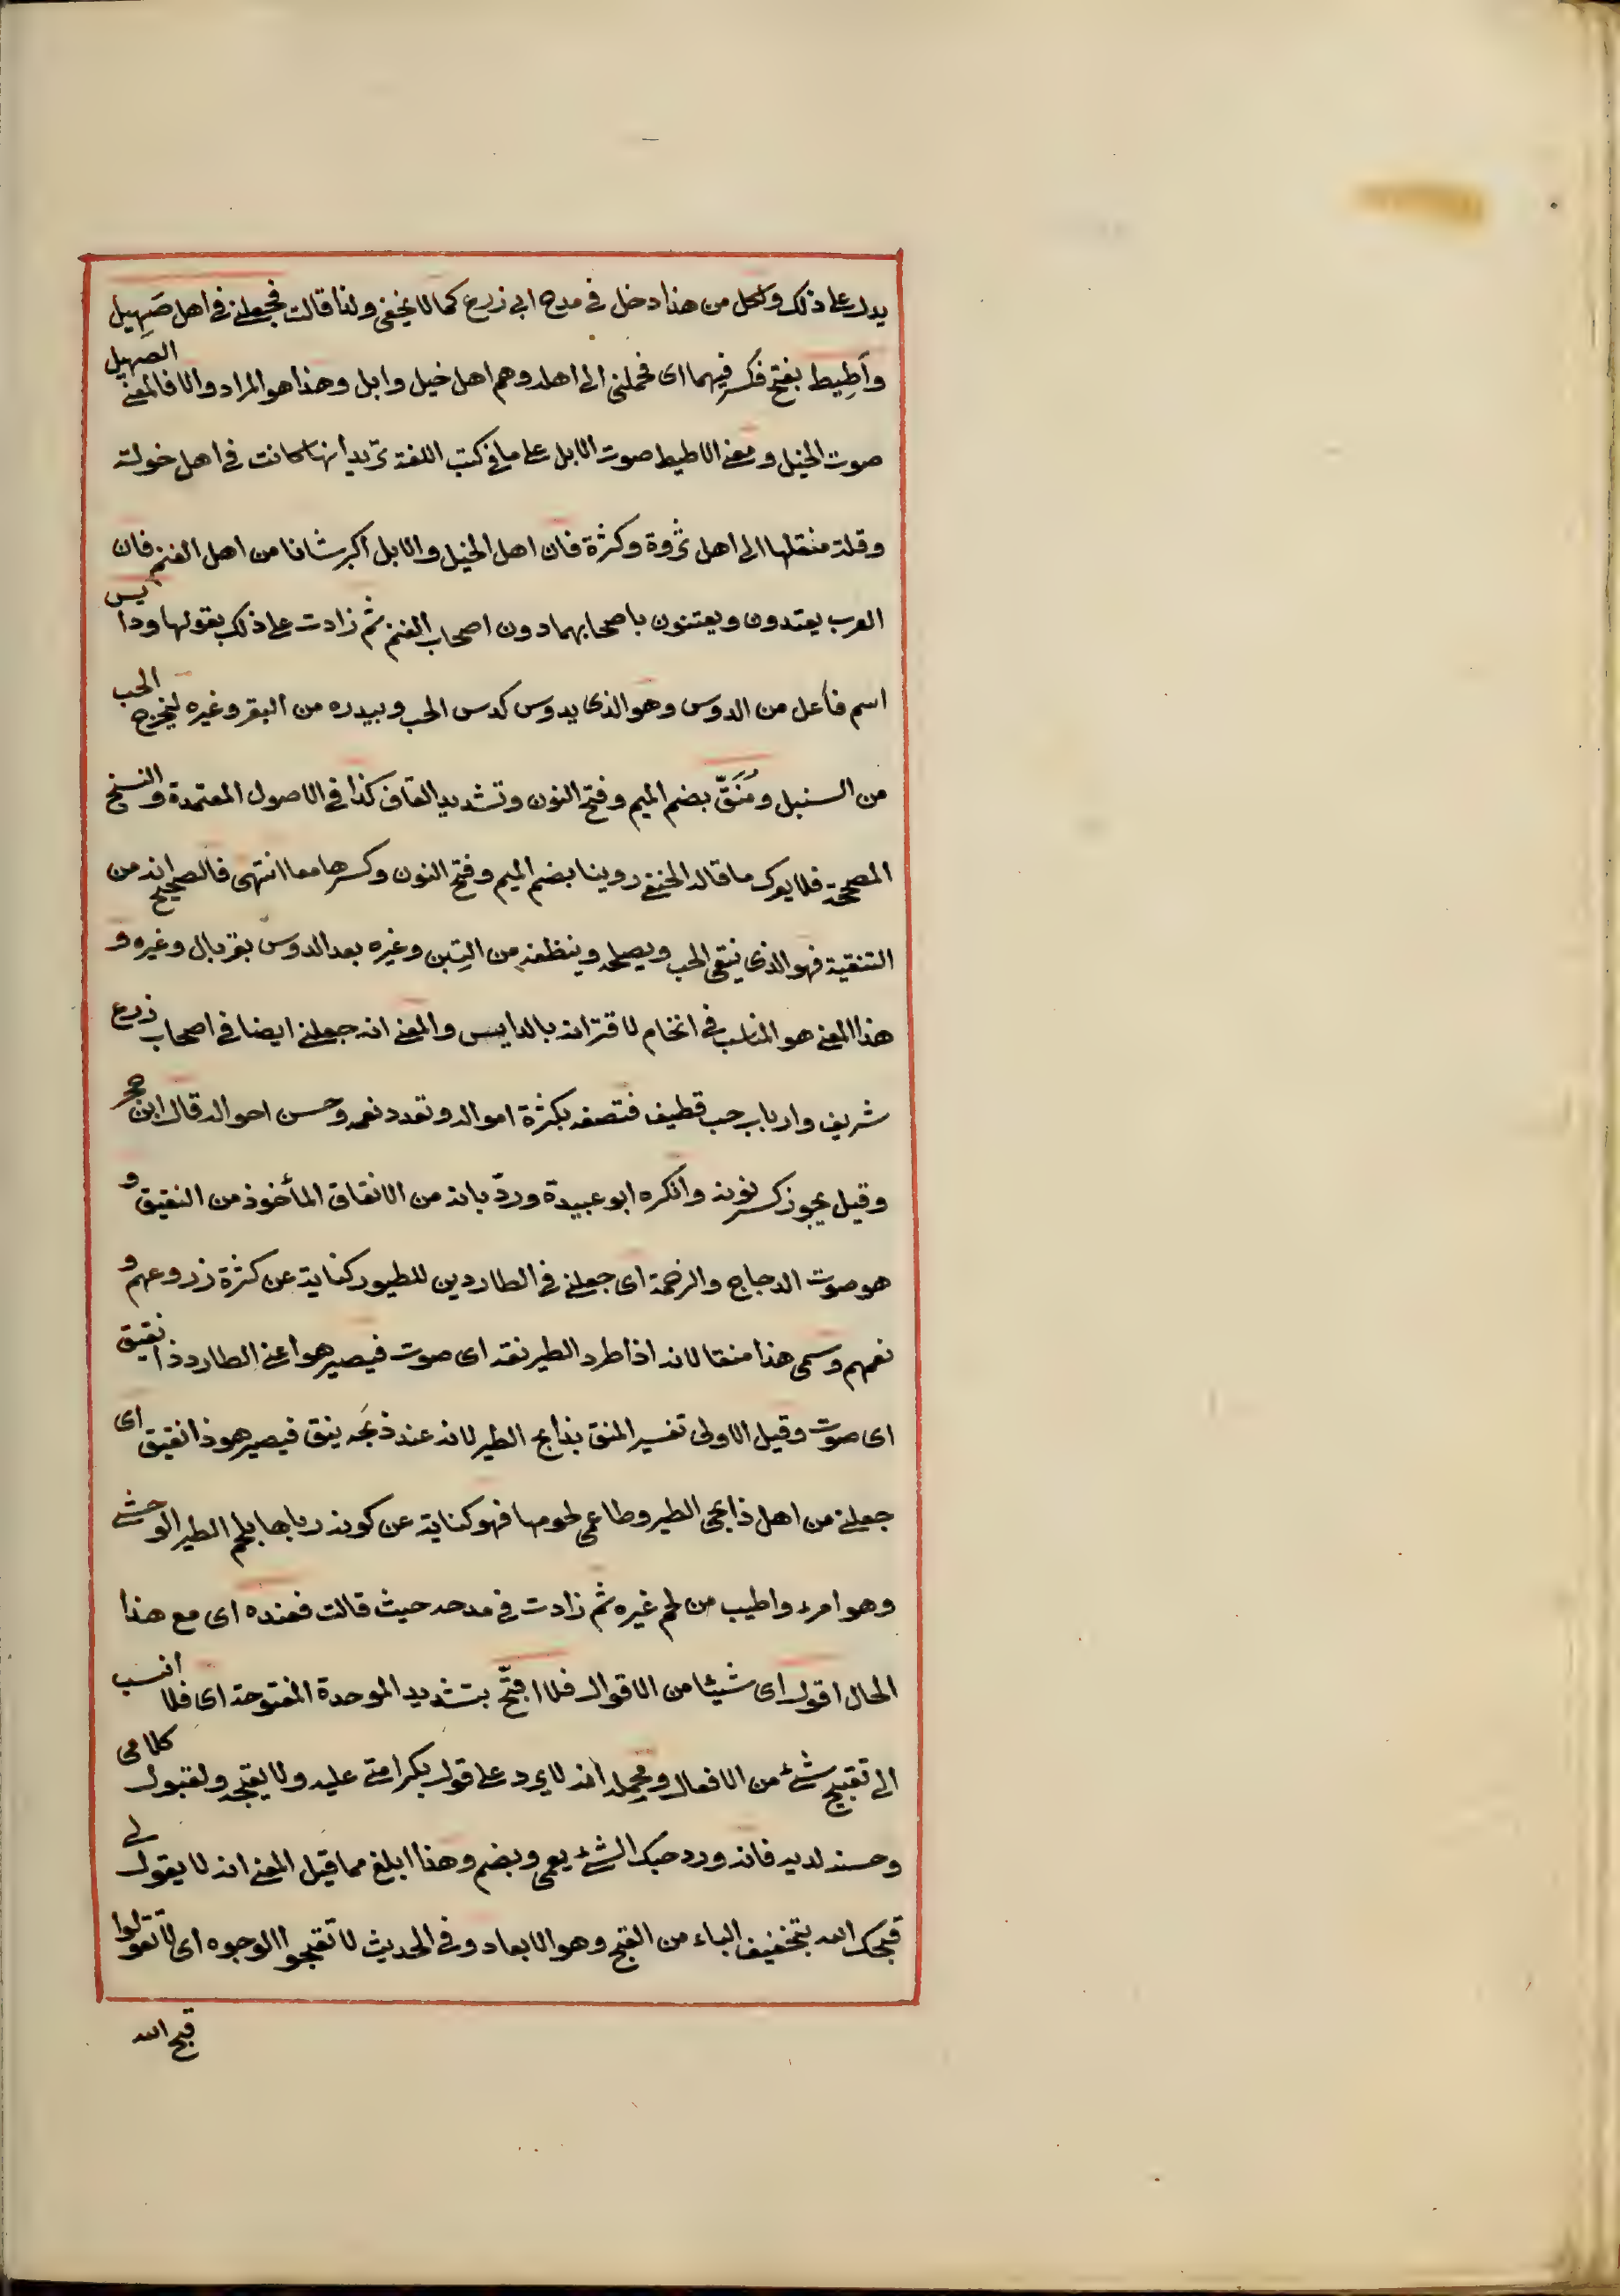 يدل على ذلك ولكل من هذا دخل فى مدح ابى زرع كما لا يخفى ولذا قالت فجعلنى فى اهل صَهِيل
وأَطِيط بفتح فكسر فيهما اى فحملنى الى اهله وهم اهل خيل وابل وهذا هو المراد والا فالمعنى الصهيل
صوت الخيل ومعنى الاطيط صوت الابل على ما فى كتب اللغة تريد أنها كانت فى اهل خولة
وقلة فنقلها الى اهل ثروة وكثرة فان اهل الخيل والابل اكبر شانا من اهل الغنم فان
العرب يعتدون ويعتنون باصحابهما دون اصحاب الغنم ثم زادت على ذلك بقولها ودايس
اسم فاعل من الدوس وهو الذى يدوس كدس الحب وبيدره من البقر وغيره ليخرج الحب
من السنبل ومُنَقّ بضم الميم وفتح النون وتشديد القاف كذا فى الاصول المعتمدة والنسخ
المصححة فلا يرك ما قاله الحنفى روينا بضم الميم وفتح النون وكسرها معا انتهى فالصحيح انه من
التنقية فهو الذى ينقى الحب ويصلحه وينظفه من التِبن وغيره بعد الدوس بغربال وغيره و
هذا المعنى هو المناسب فى اتخام لاقترانه بالدايس والمعنى انه جعلنى ايضا فى اصحاب زرع
شريف وارباب حب قطيف فتصفه بكثرة امواله وتعدد نعمه وحسن احواله قال ابن حجر
وقيل يجوز كسر نونه وأنكره ابو عبيدة وردّ بانه من الانقاق المأخوذ من النقيق و
هو صوت الدجاج والرخمة اى جعلنى فى الطاردين للطيور كناية عن كثرة زروعهم و
نعمهم وسمى هذا منقا لانه اذا طرد الطير نقه اى صوت فيصير هو اعنى الطارد ذا نقيق
اى صوت وقيل الاولى تفسير المنق بذابح الطير لانه عند ذبحَه ينق فيصير هو ذا نقيق اى
جعلنى من اهل ذابحى الطير وطاعمى لحومها فهو كناية عن كونه رباها بلحم الطير الوحشى
وهو امرء واطيب من لحم غيره ثم زادت فى مدحه حيث قالت فعنده اى مع هذا
الحال اقول اى شيئا من الاقوال فلا اقبّح بتشديد الموحدة المفتوحة اى فلا أنسب
الى تقبيح شئ من الافعال ومحمله انه لا يرد على قول بكرامتى عليه ولا يقبحه ولقبول كلامى
وحسنه لديه فانه ورد حبك الشئ يعمى ويضم وهذا ابلغ مما قيل المعنى انه لا يقول لى
قبحك الله بتخفيف الباء من القبح وهو الابعاد وفى الحديث لا تقبحوا الوجوه اى لا تقولوا
قبح الله